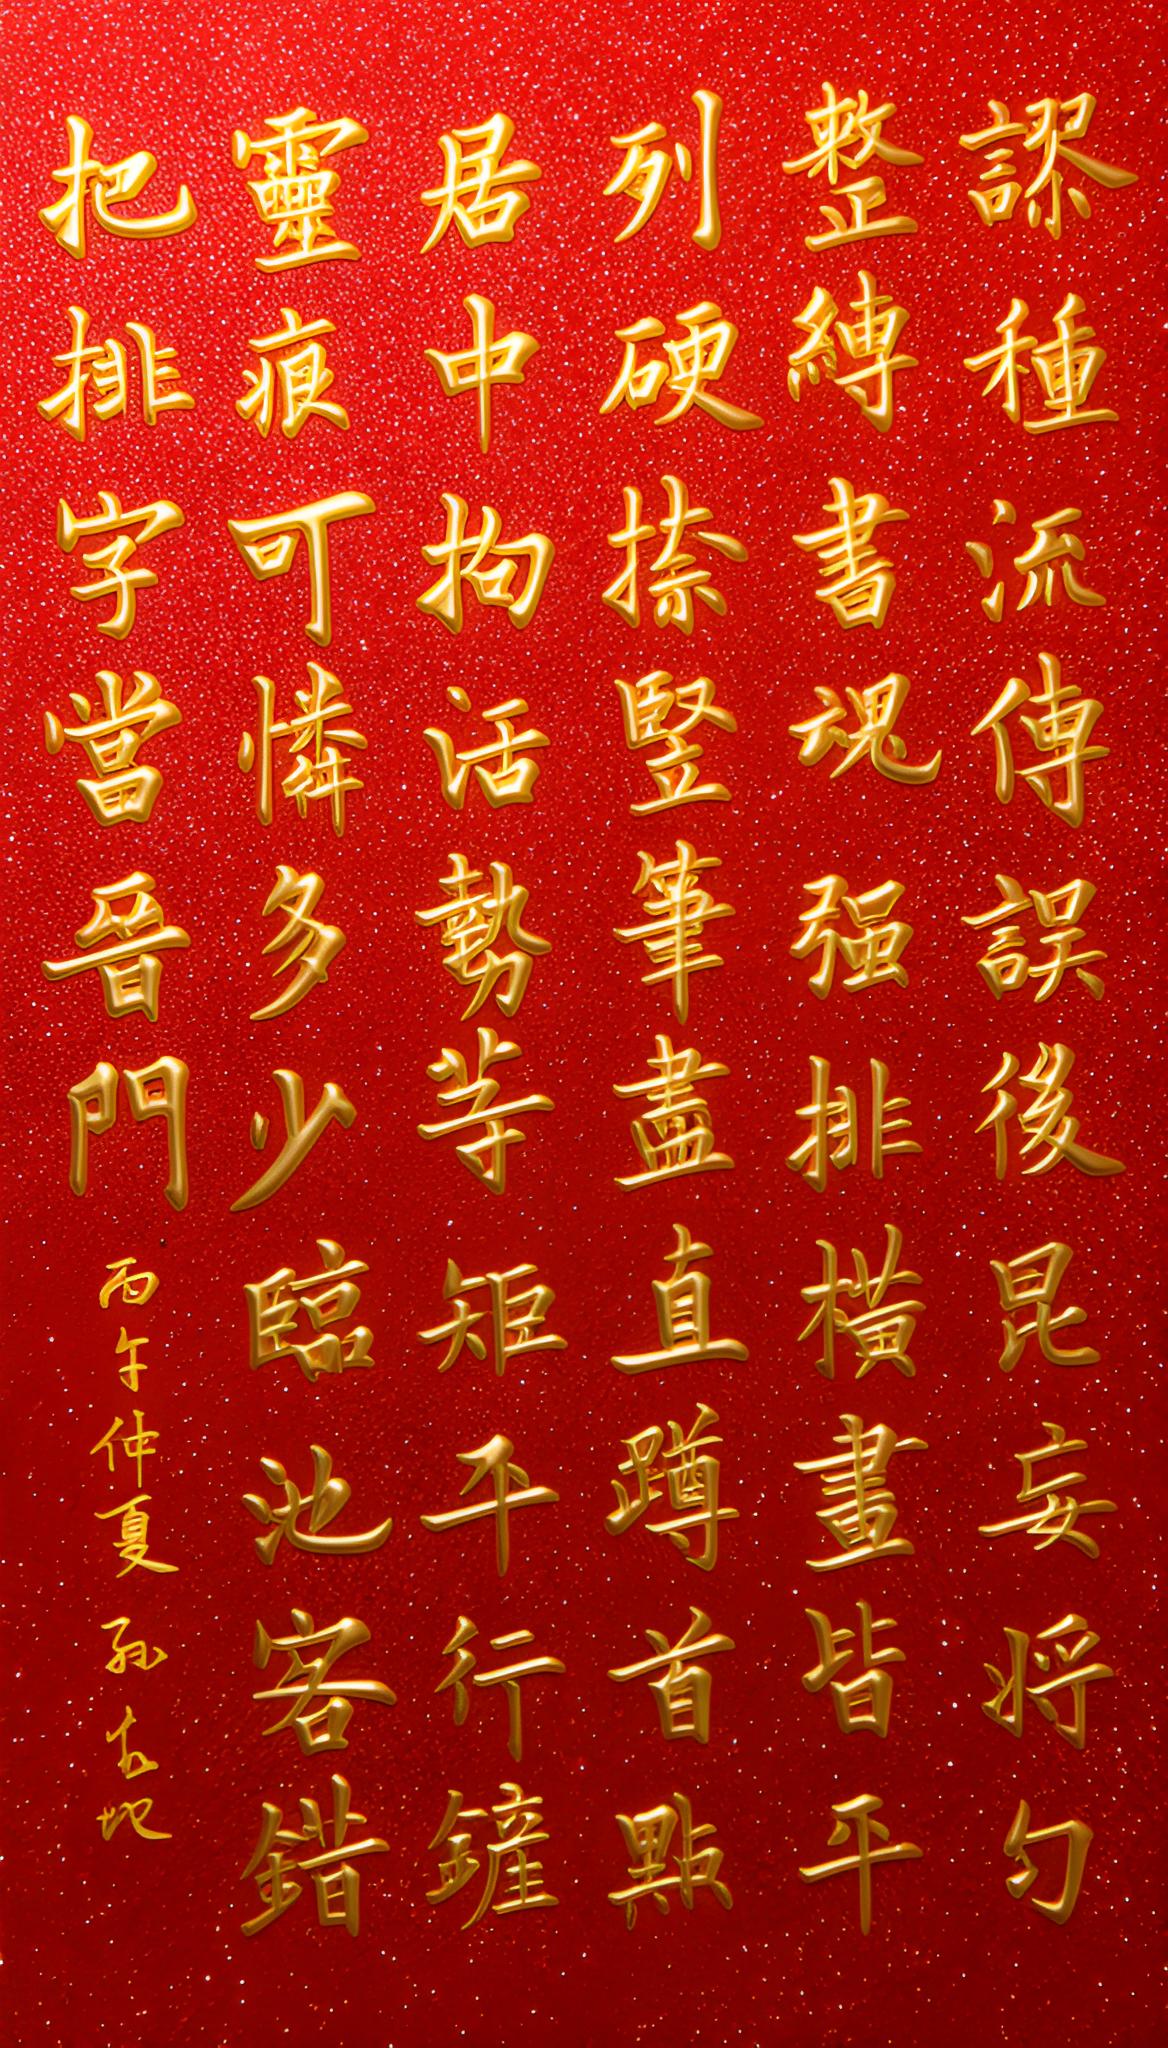 謬種流傳誤後昆妄將勻
整縛書魂强排橫畫皆平
列硬捺豎筆盡直蹲首點
居中拘活勢等矩平行鏟
靈痕可憐多少臨池客錯
把排字當晉門
丙午仲夏
孫
地